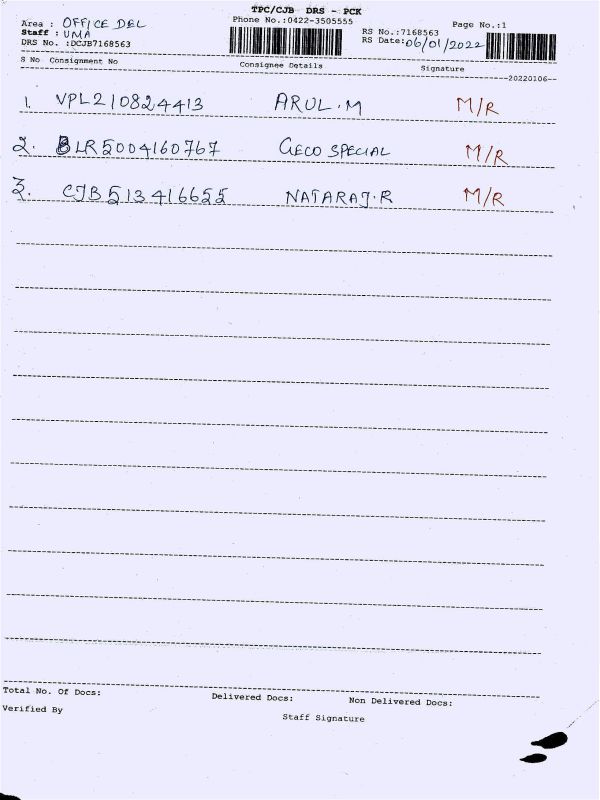 TPC/CJB DRS - PCK
Area : OFFICE DEL Phone No.:0422-3505555 Page No.:1
Staff : UMA RS No.:7168563
DRS No. :DCJB7168563 RS Date:06/01/2022
S No Consignment No Consignee Details Signature
--20220106--
1. VPL210824413 ARUL.M M/R
2. BLR5004160767 GECO SPECIAL M/R
3. CJB513416655 NATARAJ.R M/R
Total No. Of Docs: Delivered Docs: Non Delivered Docs:
Verified By Staff Signature